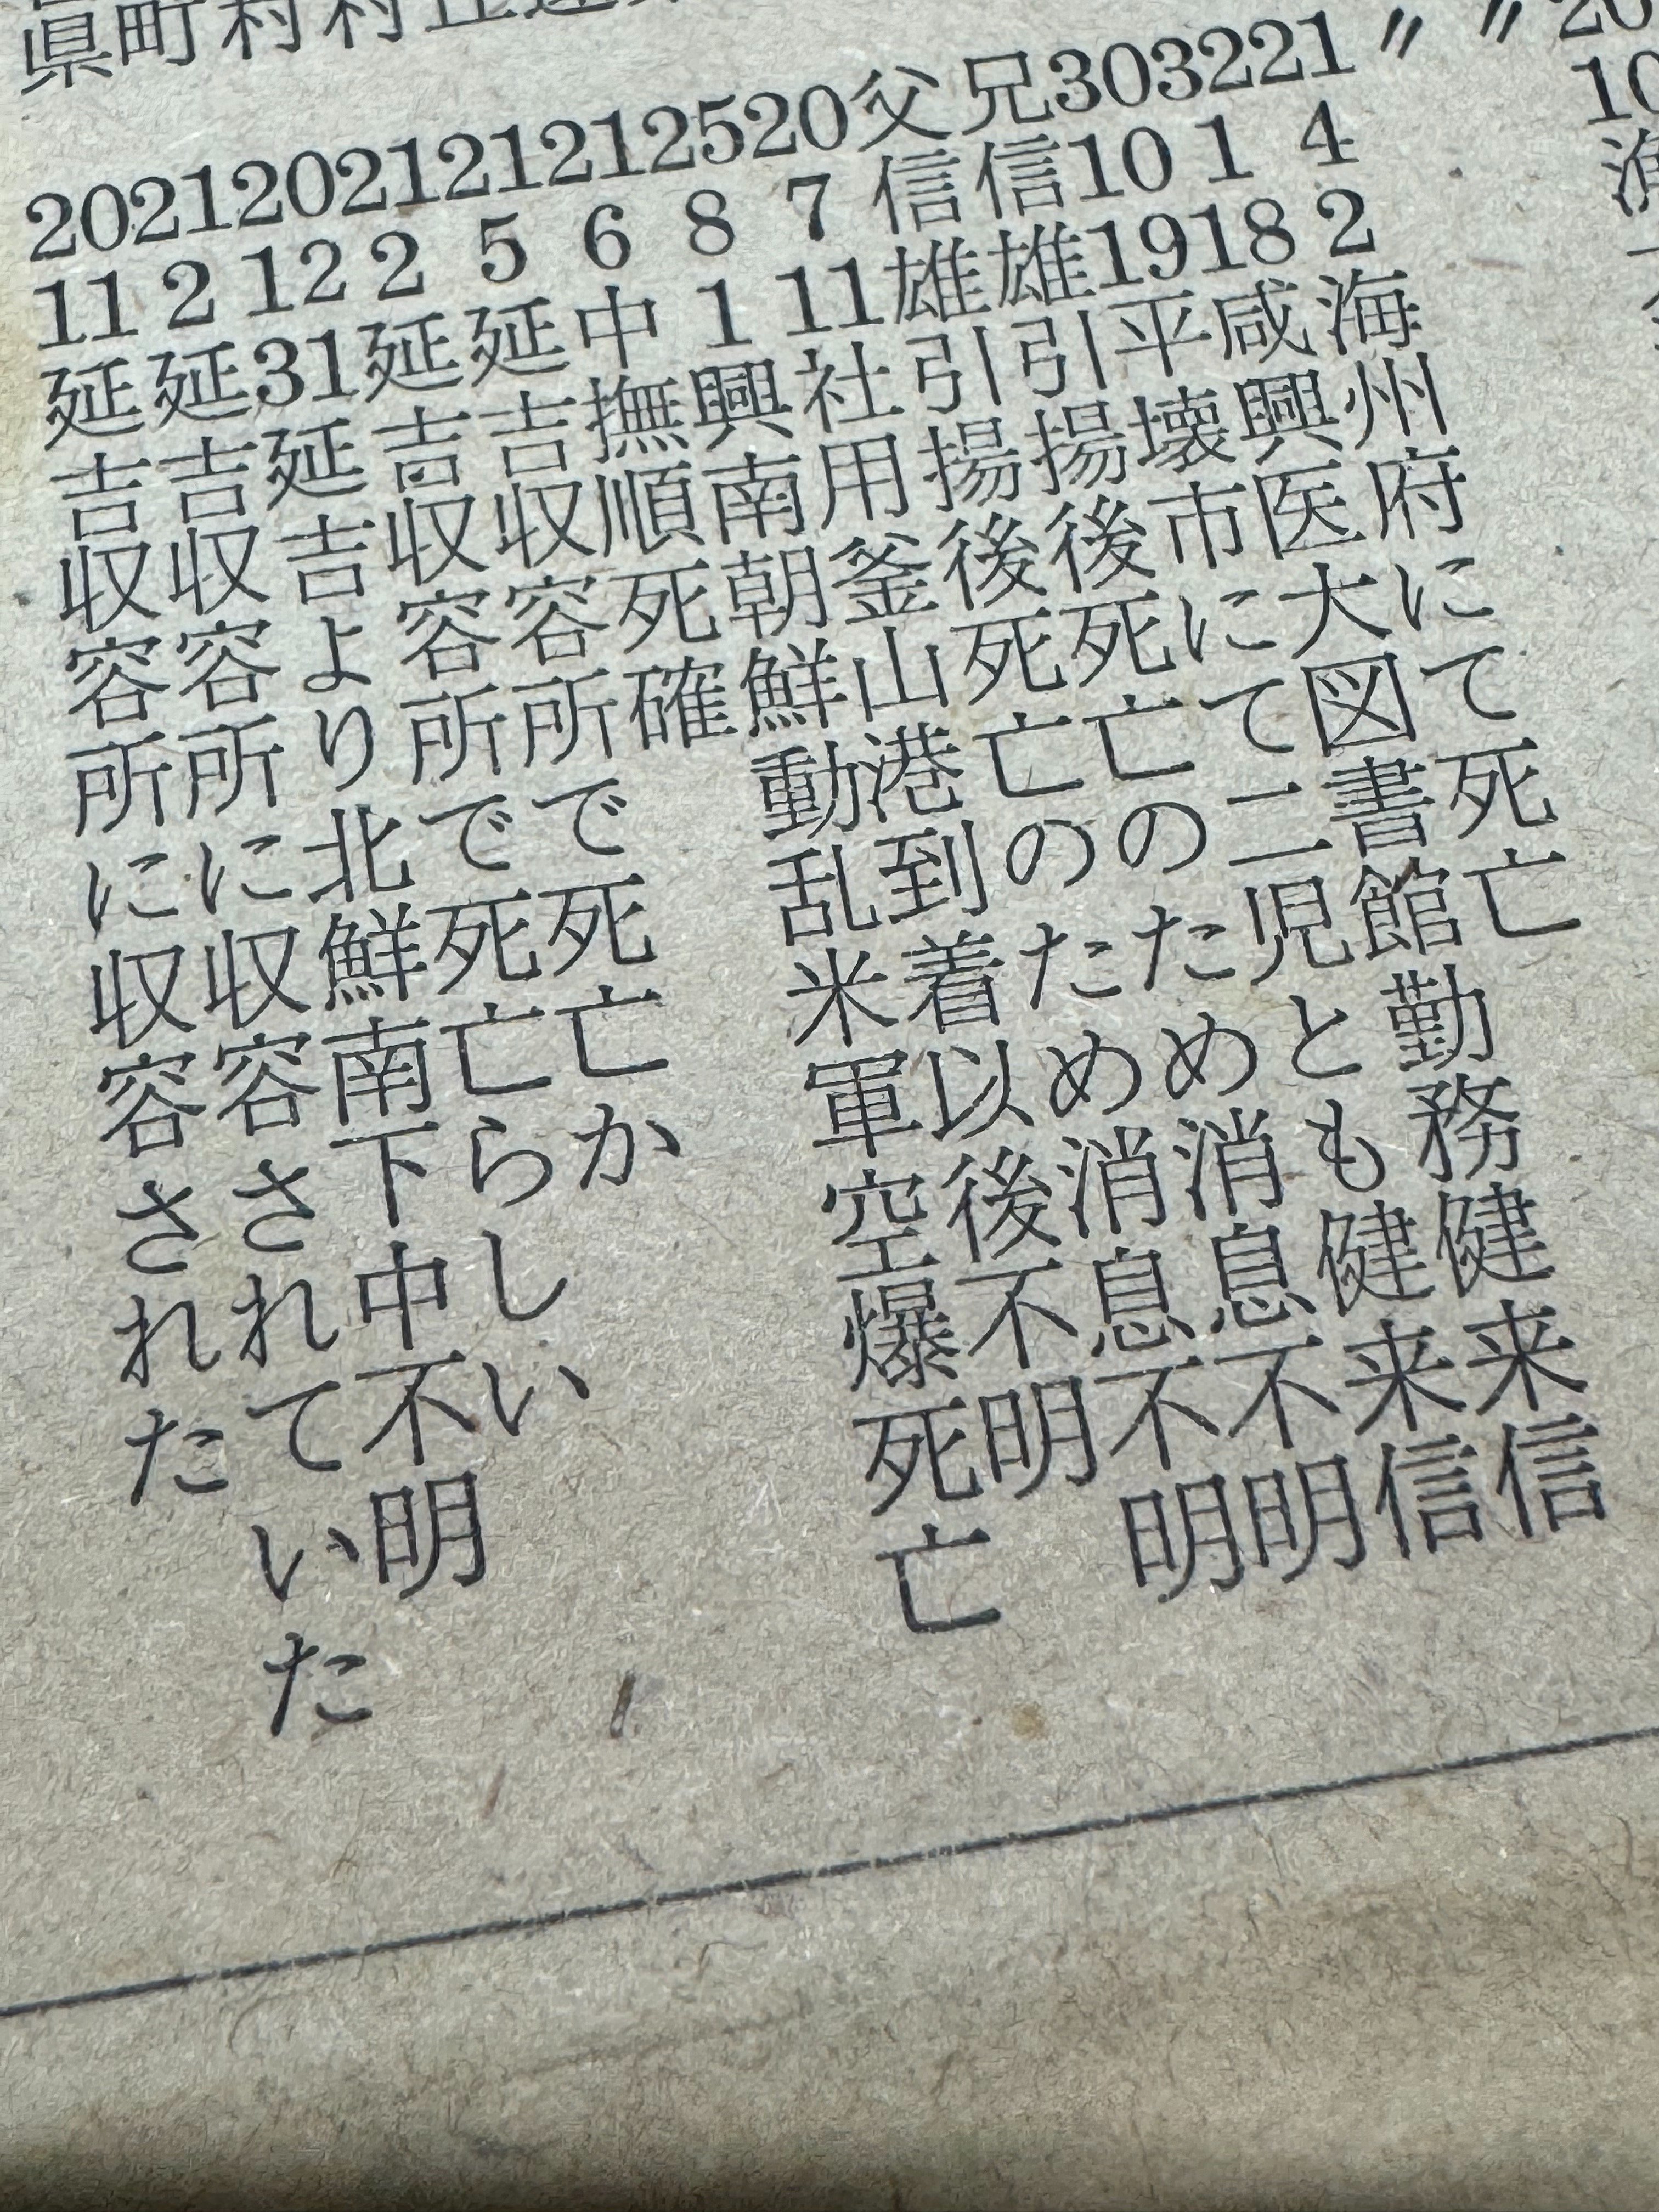 20 10
〃
〃
21 4 2 海州府にて死亡
32 1 18 咸興医大図書館勤務健来信
30 10 19 平壊市にて二児とも健来信
兄信雄引揚後死亡のため消息不明
父信雄引揚後死亡のため消息不明
20 7 11 社用釜山港到着以後不明
25 8 1 興南朝鮮動乱米軍空爆死亡
21 6 中撫順死確
21 5 延吉収容所で死亡か
21 2 延吉収容所で死亡らしい
村 20 12 31 延吉より北鮮南下中不明
町 21 2 延吉収容所に収容されていた
県 20 11 延吉収容所に収容された